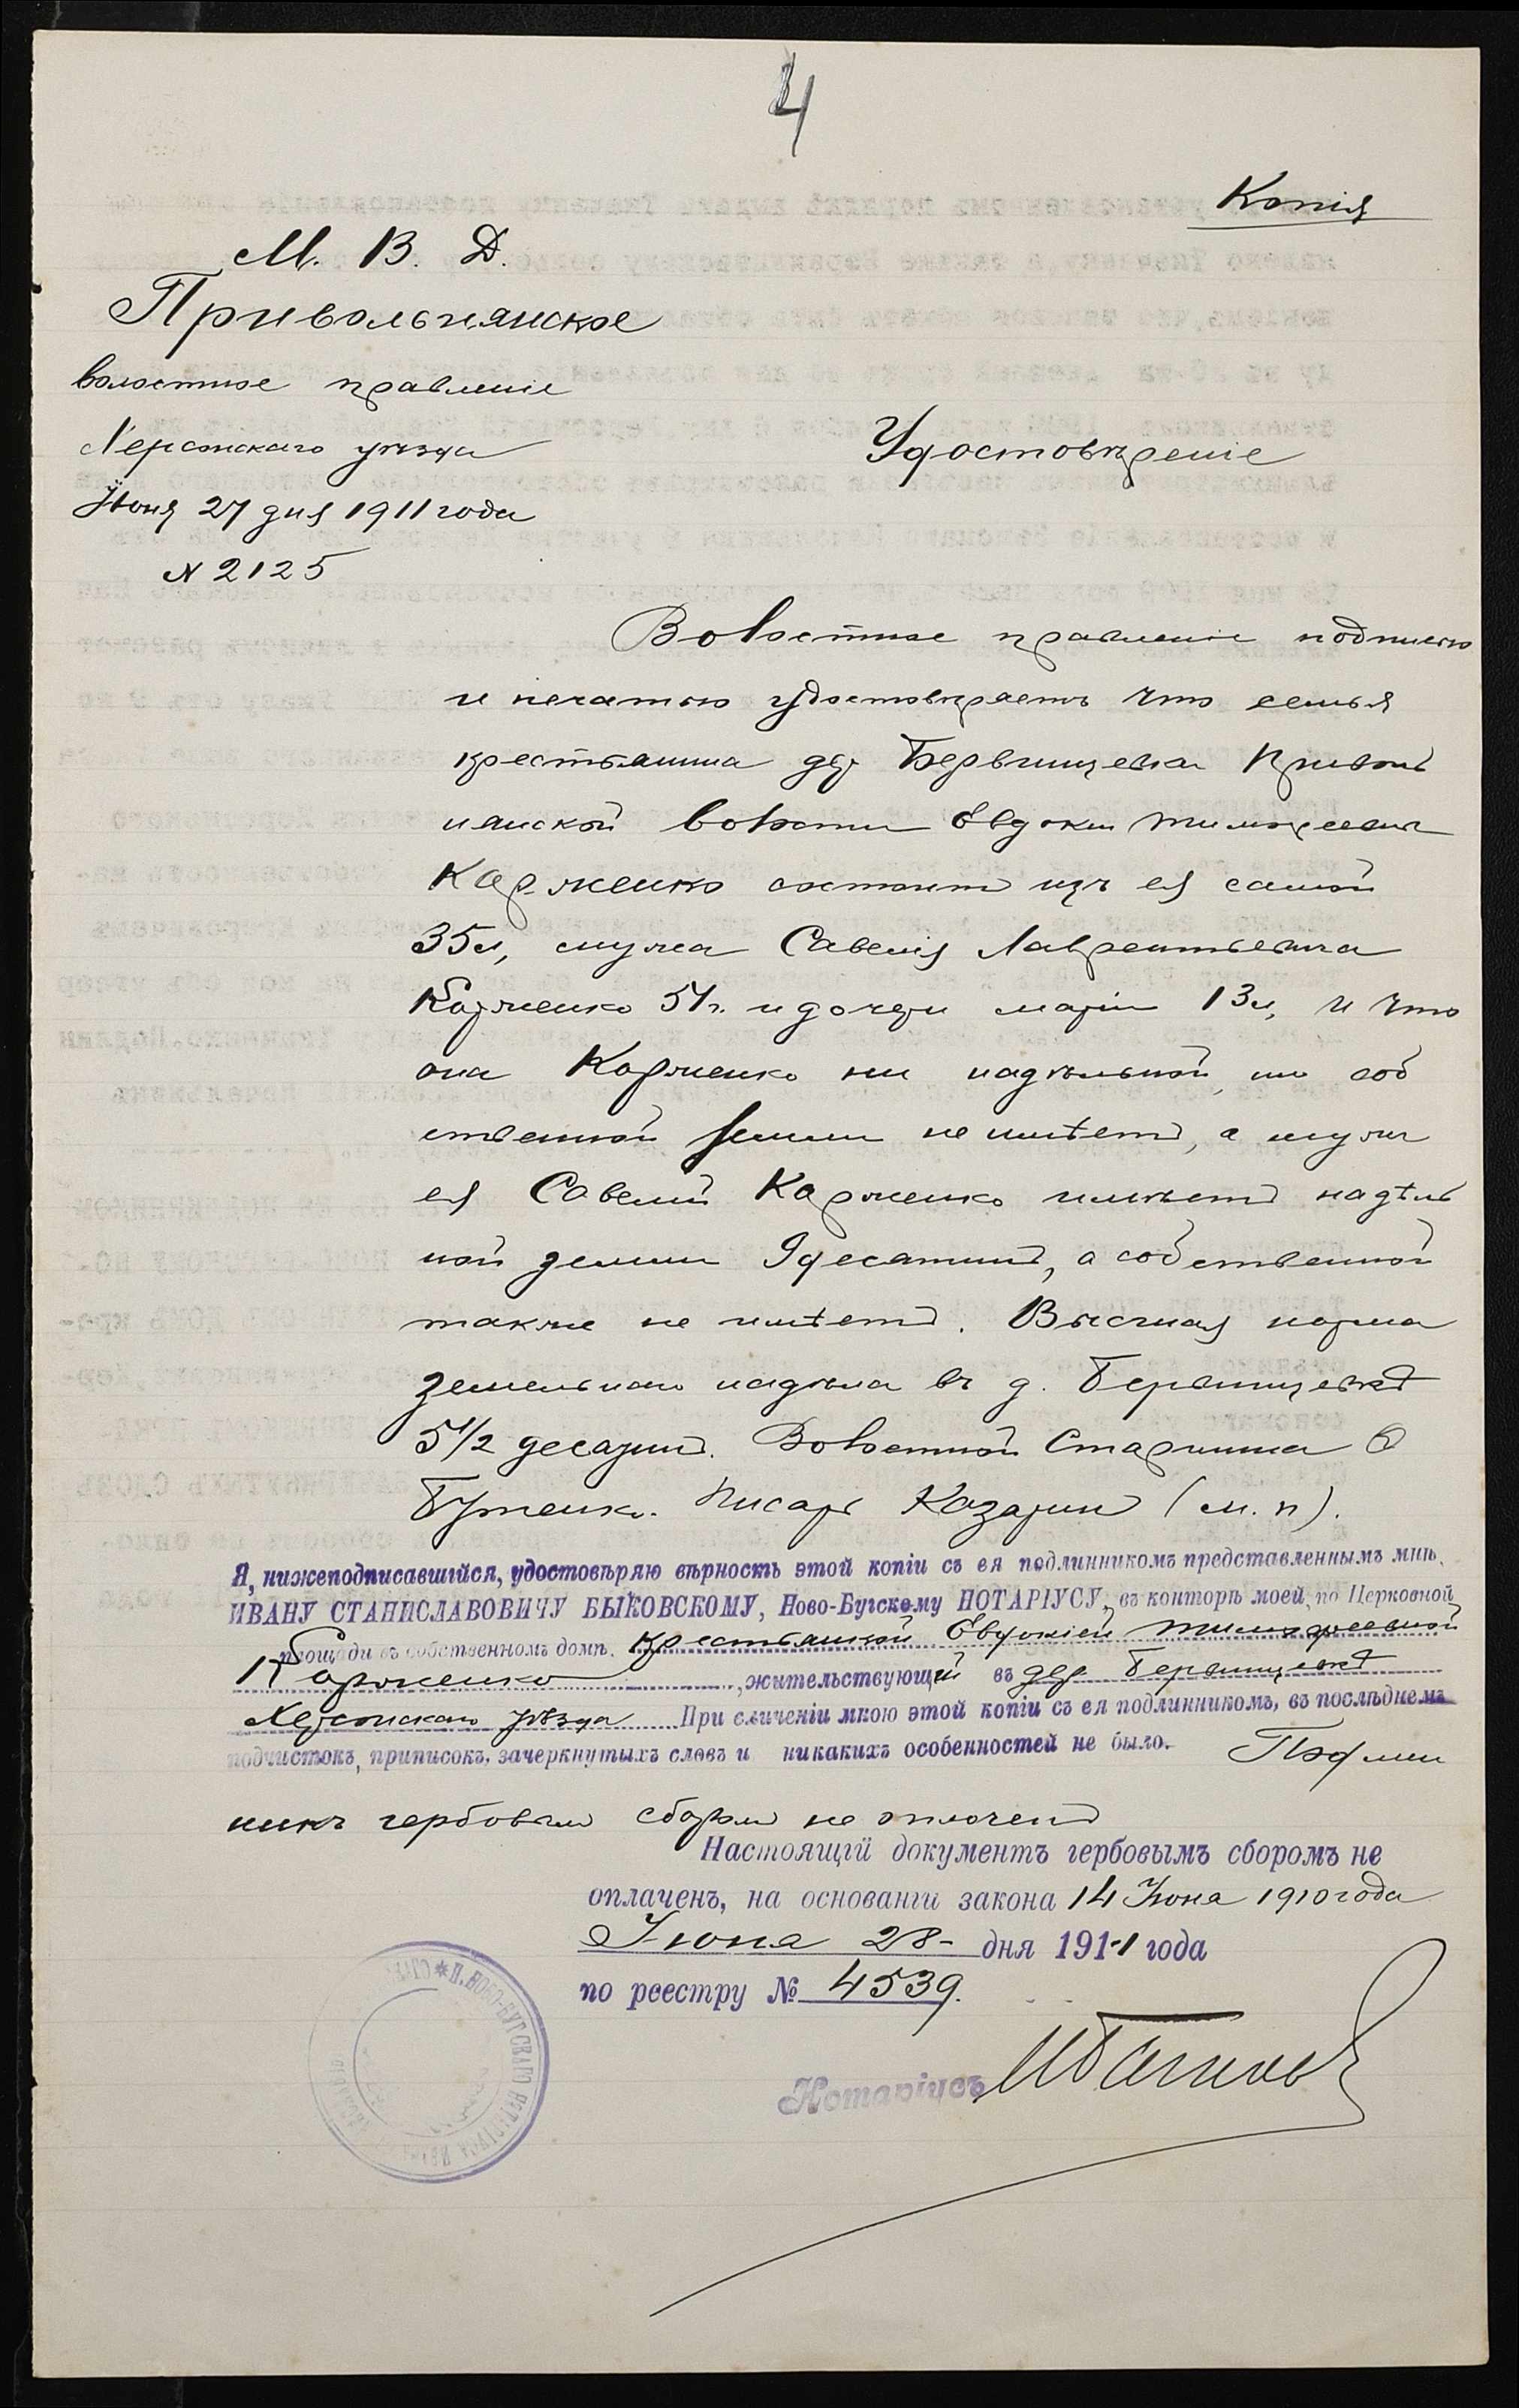 4
Копія
М. В. Д.
Привольнянское
волостное правленіе
Херсонскаго уѣзда
Іюня 27 дня 1911 года
№ 2125
Удостовѣреніе
Волостное правленіе подписью
и печатью удостовѣряетъ что семья
крестьянина дер Бервинцевка Приволь
нянской волости Евдокіи Тимофеевны
Корженко состоитъ изъ ея самой
35 л, мужа Савелія Лаврентьевича
Корженко 51 г. и дочери Маріи 13 л, и что
она Корженко ни надѣльной, ни соб
ственной земли не имѣетъ, а мужъ
ея Савелій Корженко имѣетъ надѣль
ной земли 9 десятинъ, а собственной
также не имѣетъ. Высшая норма
земельнаго надѣла въ д. Бервинцевкѣ
5 1/2 десятин. Волостной Старшина
Бутенко. Писарь Казарин (м. п).
Я, нижеподписавшійся, удостовѣряю вѣрность этой копіи съ ея подлинникомъ представленнымъ мнѣ,
ИВАНУ СТАНИСЛАВОВИЧУ БЫКОВСКОМУ, Ново-Бугскому НОТАРІУСУ, въ конторѣ моей, по Церковной
площади въ собственномъ домѣ, крестьянкой Евдокіей Тимофеевной
Корженко, жительствующей въ дер. Бервинцевкѣ
Херсонскаго уѣзда При сличеніи мною этой копіи съ ея подлинникомъ, въ послѣднемъ
подчистокъ, приписокъ, зачеркнутыхъ словъ и никакихъ особенностей не было. Подлин
никъ гербовым сбором не оплочен
Настоящій документъ гербовымъ сборомъ не
оплаченъ, на основаніи закона 14 Іюня 1910 года
Іюня 28 - дня 1911 года
по реестру № 4539.
Нотаріусъ
Н. НОВО-БУГСКАГО НОТАРІУСА